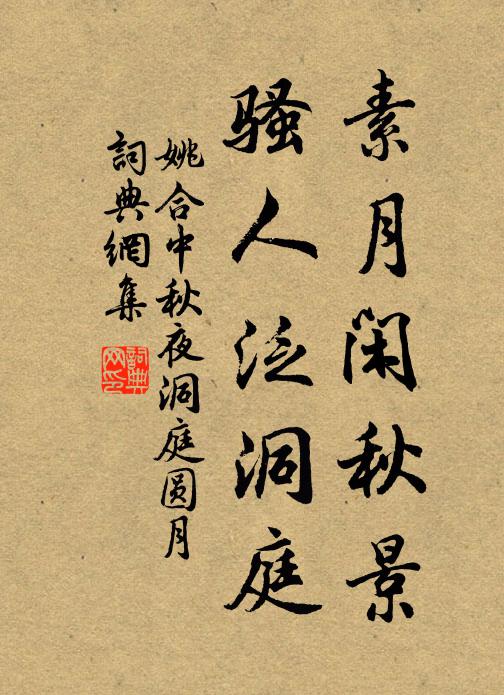 素月閑秋景
騷人泛洞庭
姚合中秋夜洞庭圆月
詞典網集
詞典网印